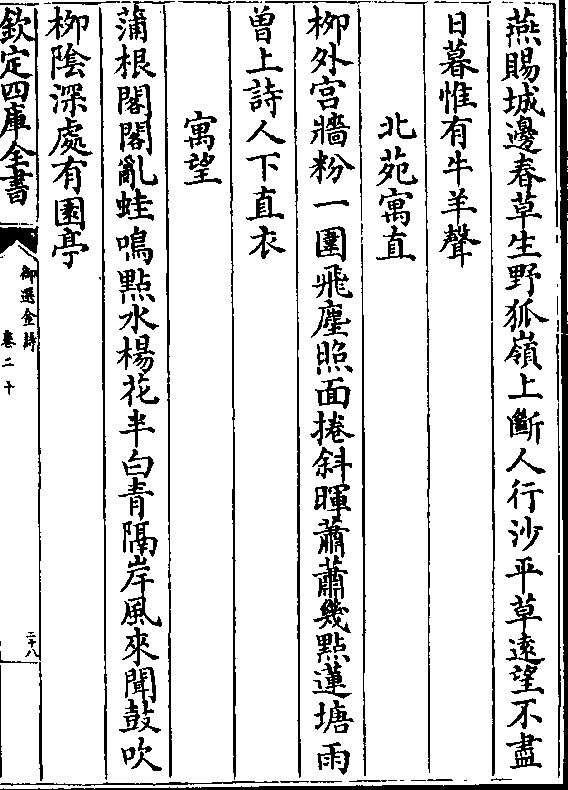 燕賜城邊春草生野狐嶺上斷人行沙平草遠望不盡
日暮惟有牛羊聲
北苑寓直
柳外宮牆粉一圍飛塵照面捲斜暉蕭蕭幾點蓮塘雨
曾上詩人下直衣
寓望
蒲根閣閣亂蛙鳴點水楊花半白青隔岸風來聞鼓吹
柳陰深處有園亭
欽定四庫全書
御選金詩
卷二十
二十八